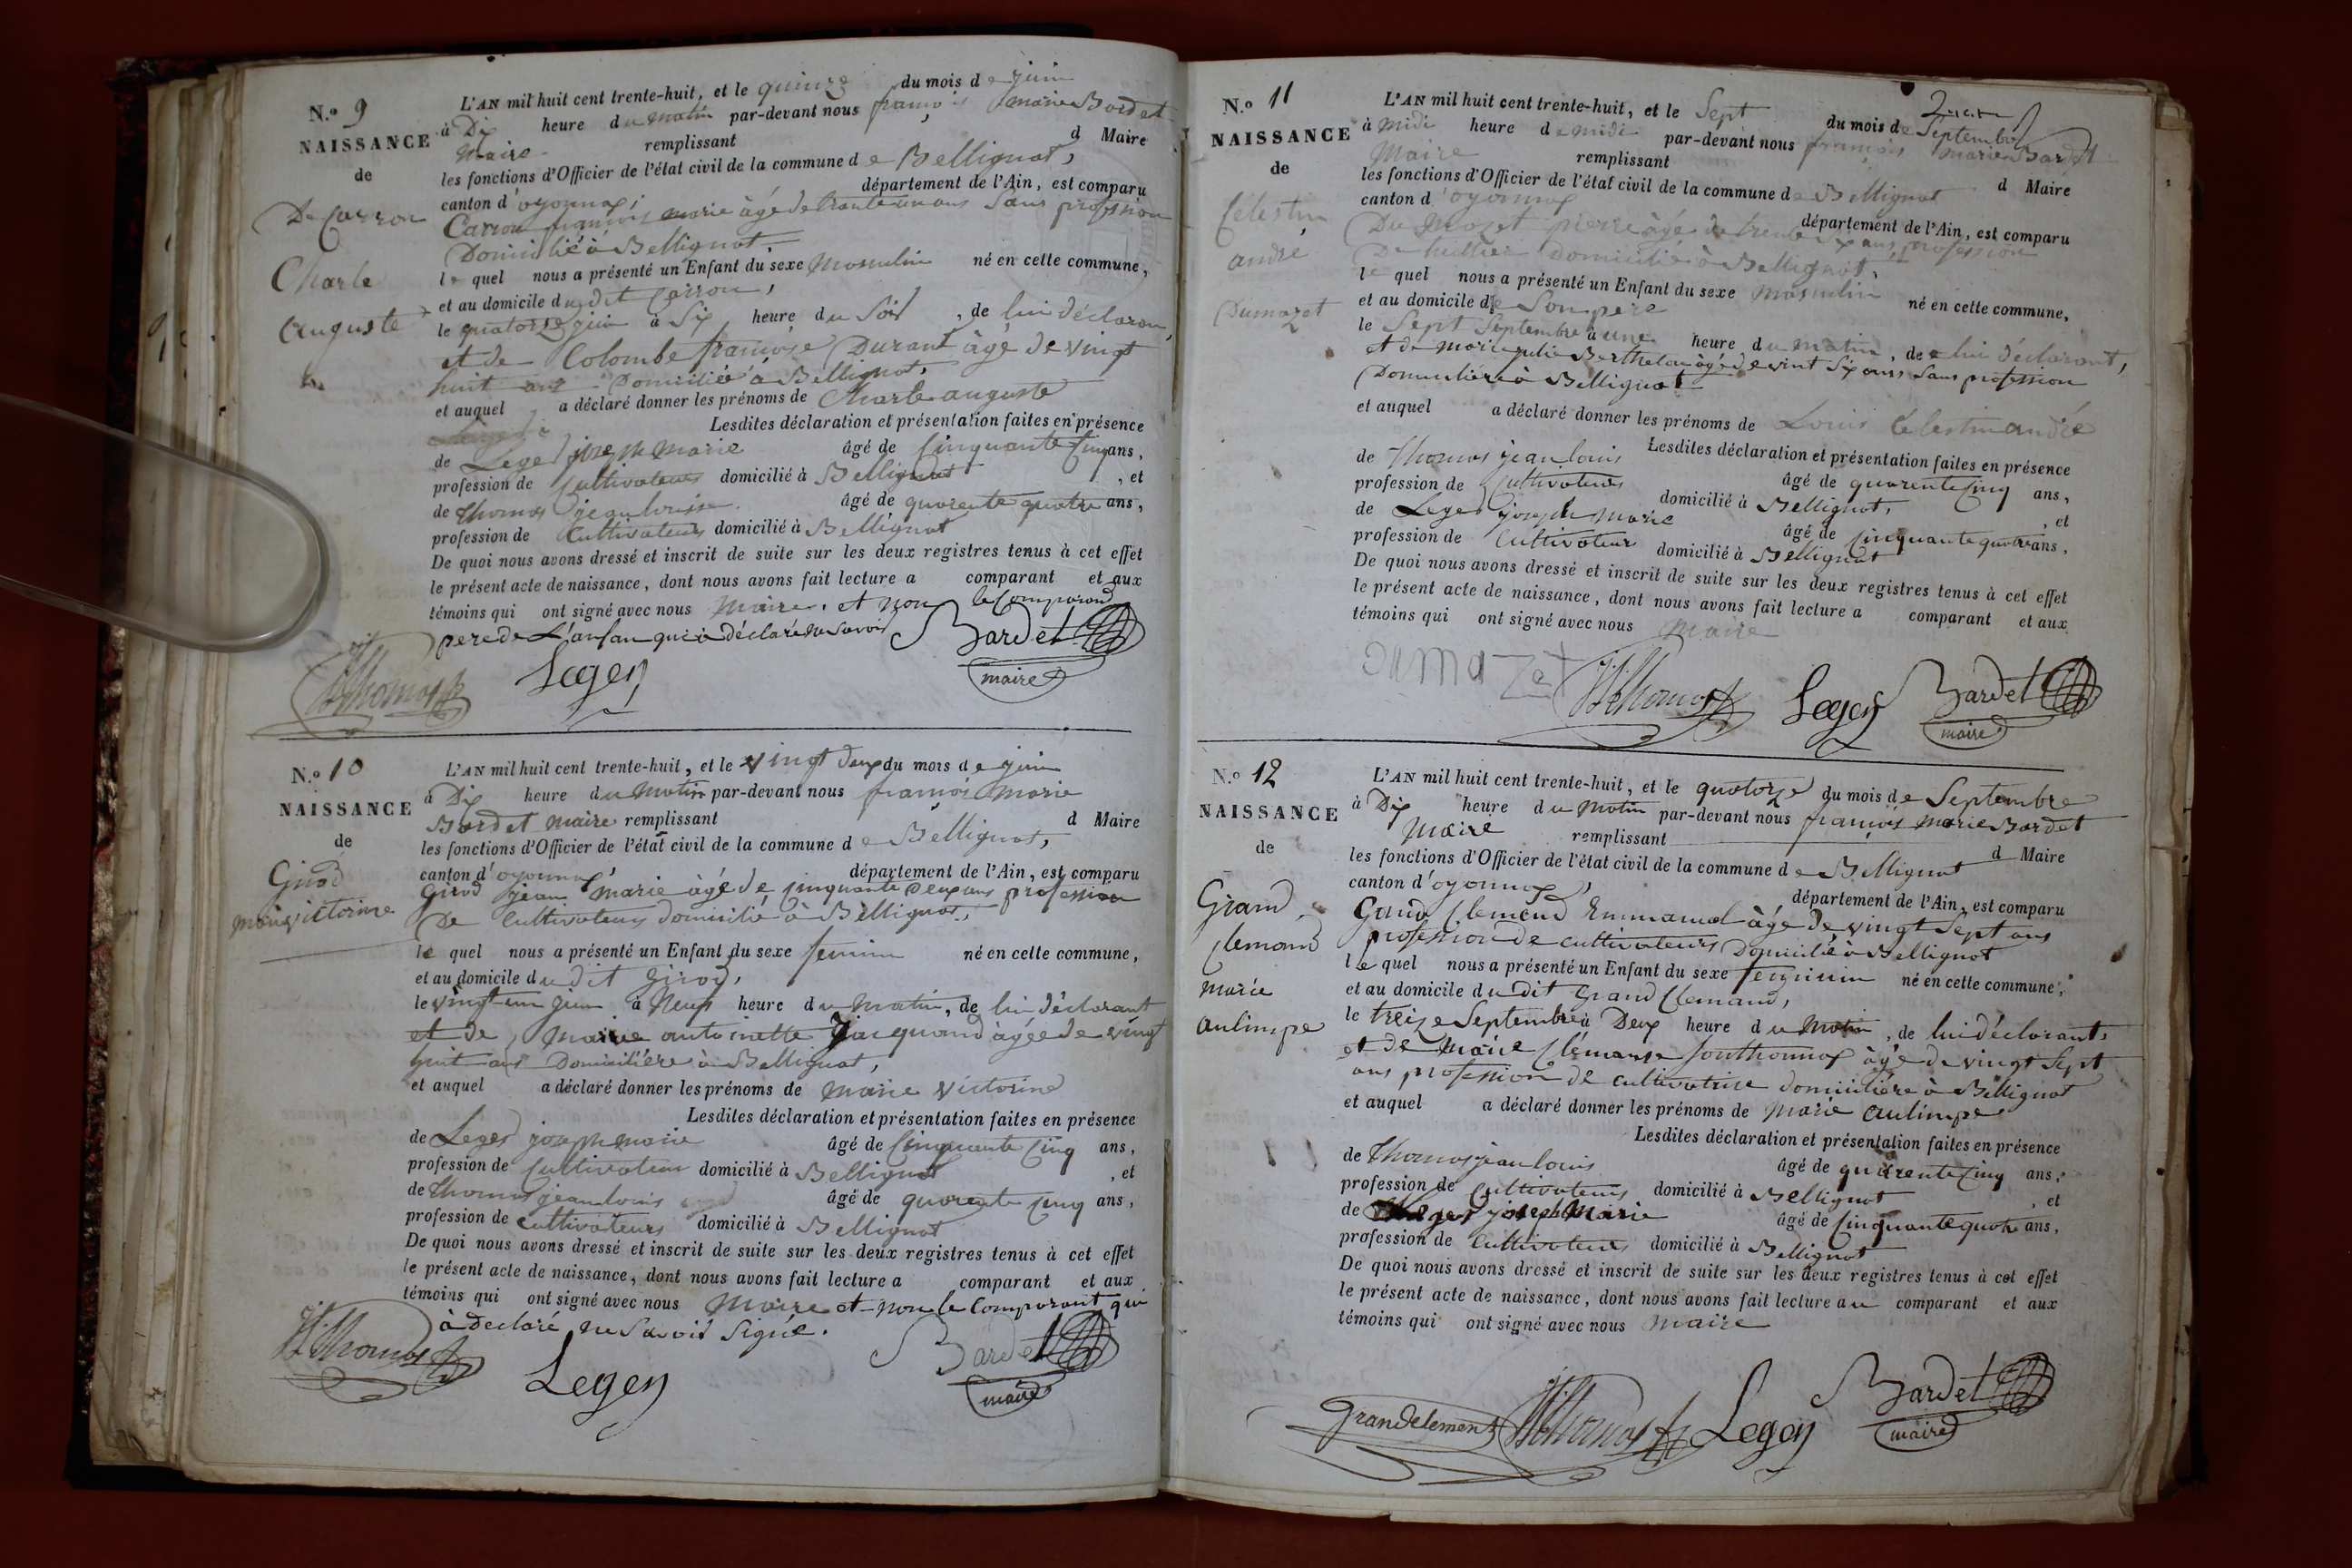 N.º 9
NAISSANCE
de
De Carron
Charle
Auguste
L'AN mil huit cent trente-huit, et le quinze du mois de juin
à Dix heure du matin par-devant nous françois marie Bardet
Maire remplissant d Maire
les fonctions d'Officier de l'état civil de la commune de Bellignat,
canton d'oyonnax, département de l'Ain, est comparu
Carron françois marie âgé de trente un ans Sans profession
Domicilié à Bellignat.
le quel nous a présenté un Enfant du sexe Masculin né en cette commune,
et au domicile dudit Carron,
le quatorze juin à Six heure du Soir, de lui déclarant,
et de Colombe françoise Durant âgé de vingt
huit ans Domiciliée à Bellignat,
et auquel a déclaré donner les prénoms de Charle auguste
Lesdites déclaration et présentation faites en présence
de Leger joseph Marie âgé de Cinquante Cinq ans,
profession de Cultivateurs domicilié à Bellignat, et
de Thomas jean louis âgé de quarente quatre ans,
profession de Cultivateurs domicilié à Bellignat
De quoi nous avons dressé et inscrit de suite sur les deux registres tenus à cet effet
le présent acte de naissance, dont nous avons fait lecture a comparant et aux
témoins qui ont signé avec nous Maire, et non le Comparand
pere de L'anfan qui à déclaré ne Savoir
Thomas Legey Bardet
maire
N.º 10
NAISSANCE
de
Girod
marie victorine
L'AN mil huit cent trente-huit, et le vingt deux du mois de juin
à Dix heure du Matin par-devant nous françois Marie
Bardet Maire remplissant d Maire
les fonctions d'Officier de l'état civil de la commune de Bellignat,
canton d'oyonnax, département de l'Ain, est comparu
Girod jean marie âgé de cinquante Deux ans profession
De Cultivateurs domicilié à Bellignat,
le quel nous a présenté un Enfant du sexe feminin né en cette commune,
et au domicile dudit Girod,
le vingt-un juin à Neuf heure du Matin, de lui déclarant
et de Marie antoinette Jacquand âgée de vingt
huit ans Domicilière à Bellignat,
et auquel a déclaré donner les prénoms de Marie Victorine
Lesdites déclaration et présentation faites en présence
de Leger joseph marie âgé de Cinquante Cinq ans,
profession de Cultivateur domicilié à Bellignat, et
de Thomas jean louis âgé de quarente Cinq ans,
profession de cultivateurs domicilié à Bellignat
De quoi nous avons dressé et inscrit de suite sur les deux registres tenus à cet effet
le présent acte de naissance, dont nous avons fait lecture a comparant et aux
témoins qui ont signé avec nous Maire et non le Comparant qui
à Declaré ne Savoir Signé.
Thomas Legey Bardet
maire
N.º 11
NAISSANCE
de
Célestin
andré
Dumazet
L'AN mil huit cent trente-huit, et le Sept du mois de Septembre
à midi heure de midi par-devant nous françois marie Bardet
Maire remplissant d Maire
les fonctions d'Officier de l'état civil de la commune de Bellignat
canton d'oyonnax département de l'Ain, est comparu
Du Mazet pierre âgé de trente Six ans, profession
De huillier Domicilié à Bellignat,
le quel nous a présenté un Enfant du sexe Masculin né en cette commune,
et au domicile de Son pere
le Sept Septembre à une heure du matin, de lui déclarant,
et de marie julie Berthelon âgé de vint Six ans, Sans profession
Domicilière à Bellignat
et auquel a déclaré donner les prénoms de Louis Celestin andré
Lesdites déclaration et présentation faites en présence
de Thomas jean louis âgé de quarente Cinq ans,
profession de Cultivateurs domicilié à Bellignat, et
de Leger joseph Marie âgé de Cinquante quatre ans,
profession de Cultivateurs domicilié à Bellignat
De quoi nous avons dressé et inscrit de suite sur les deux registres tenus à cet effet
le présent acte de naissance, dont nous avons fait lecture a comparant et aux
témoins qui ont signé avec nous Maire
Dumazet Thomas Legey Bardet
maire
N.º 12
NAISSANCE
de
Grand
Clemand
Marie
aulimpe
L'AN mil huit cent trente-huit, et le quatorze du mois de Septembre
à Dix heure du Matin par-devant nous françois Marie Bardet
Maire remplissant d Maire
les fonctions d'Officier de l'état civil de la commune de Bellignat
canton d'oyonnax, département de l'Ain, est comparu
Grand Clemend Emmanuel âgé de vingt Sept ans
profession de cultivateurs Domicilié à Bellignat
le quel nous a présenté un Enfant du sexe feminin né en cette commune,
et au domicile du dit Grand Clemand,
le treize Septembre à Deux heure du Matin, de lui déclarant,
et de Marie Clémance Jouthonnax âgé de vingt Sept
ans profession de cultivatrice domicilière à Bellignat
et auquel a déclaré donner les prénoms de Marie aulimpe
Lesdites déclaration et présentation faites en présence
de Thomas jean louis âgé de quarente Cinq ans,
profession de Cultivateurs domicilié à Bellignat, et
de Leger joseph Marie âgé de Cinquante quatre ans,
profession de Cultivateurs domicilié à Bellignat
De quoi nous avons dressé et inscrit de suite sur les deux registres tenus à cet effet
le présent acte de naissance, dont nous avons fait lecture au comparant et aux
témoins qui ont signé avec nous Maire
grandclement Thomas Legey Bardet
maire